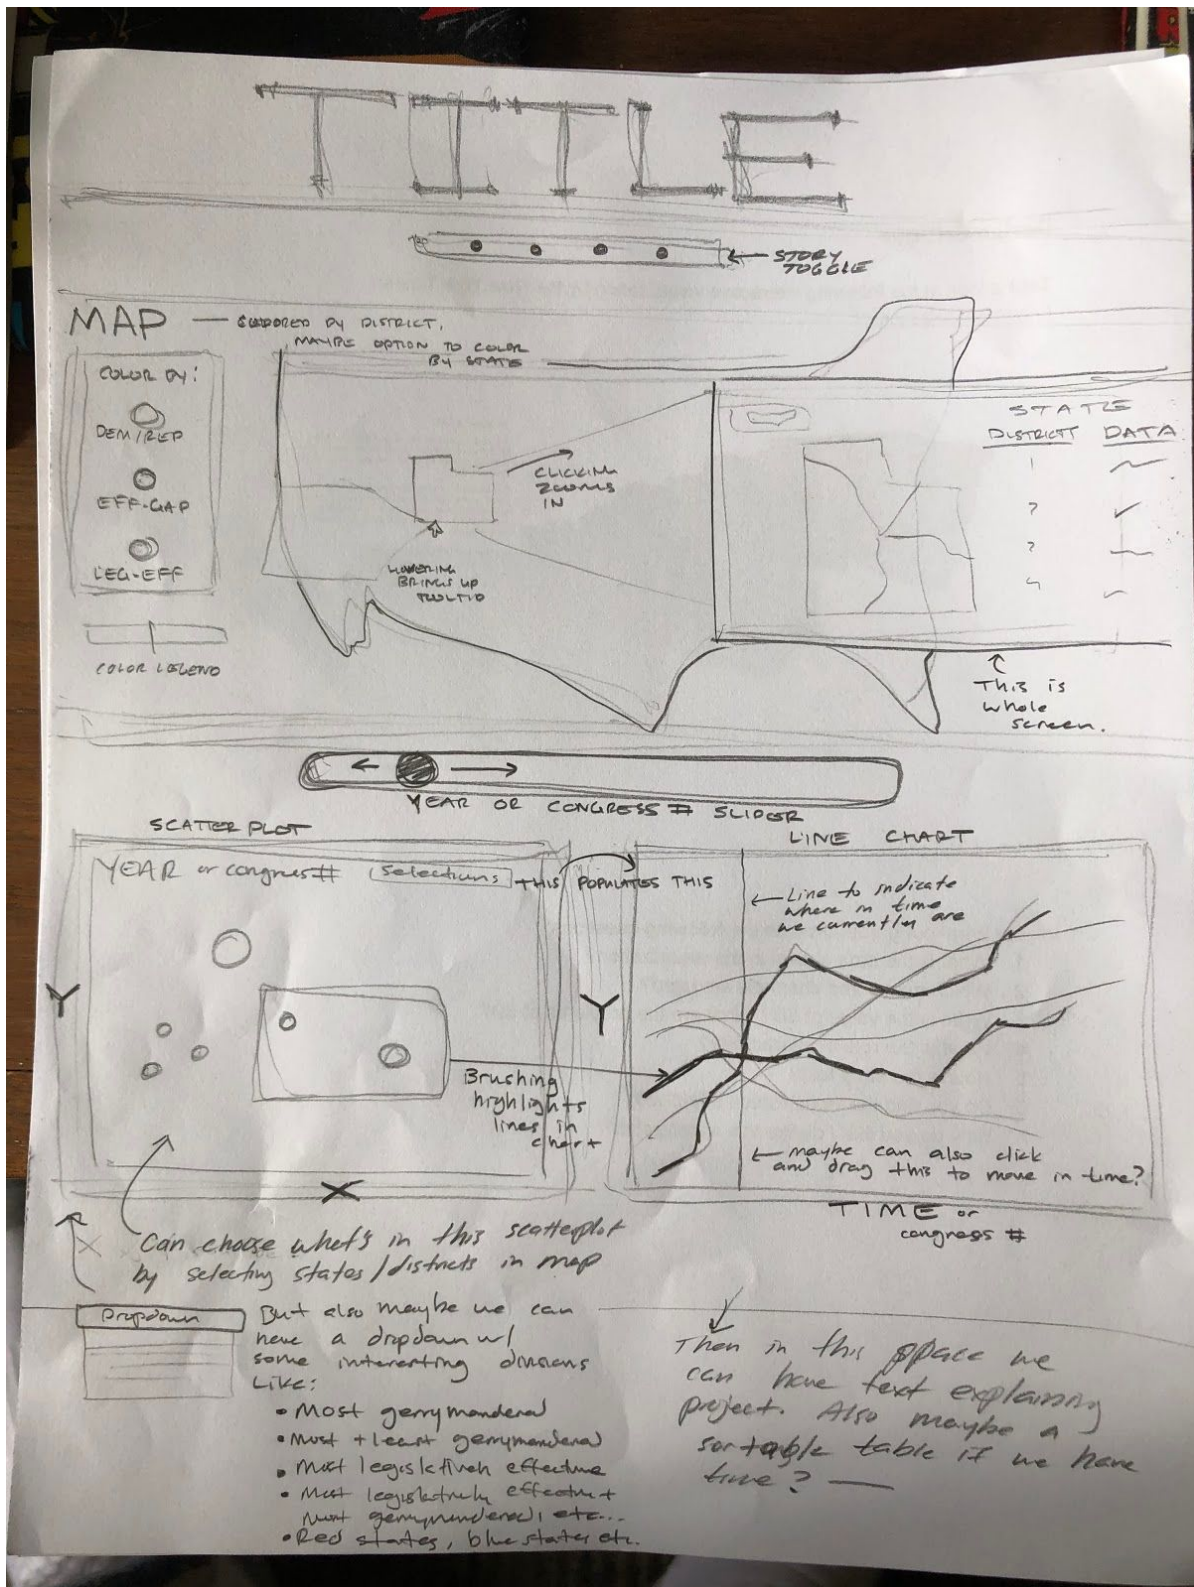 TITLE
STORY
TOGGLE
MAP — COLORED BY DISTRICT,
MAYBE OPTION TO COLOR
BY STATE
COLOR BY:
DEM/REP
EFF-GAP
LEG-EFF
COLOR LEGEND
CLICKING
ZOOMS
IN
HOVERING
BRINGS UP
TOOLTIP
STATE
DISTRICT DATA
1
?
?
4
This is
whole
screen.
YEAR OR CONGRESS # SLIDER
SCATTER PLOT
YEAR or congress # Selections THIS POPULATES THIS
Y
X
Brushing
highlights
lines in
chart
LINE CHART
Line to indicate
where in time
we currently are
Y
maybe can also click
and drag this to move in time?
TIME or
congress #
X
Can choose what's in this scatterplot
by selecting states/districts in map
Dropdown
But also maybe we can
have a dropdown w/
some interesting divisions
Like:
• Most gerrymandered
• Most + least gerrymandered
• Most legislatively effective
• Most legislatively effective +
most gerrymandered, etc...
• Red states, blue states etc.
Then in this space we
can have text explaining
project. Also maybe a
sortable table if we have
time? —